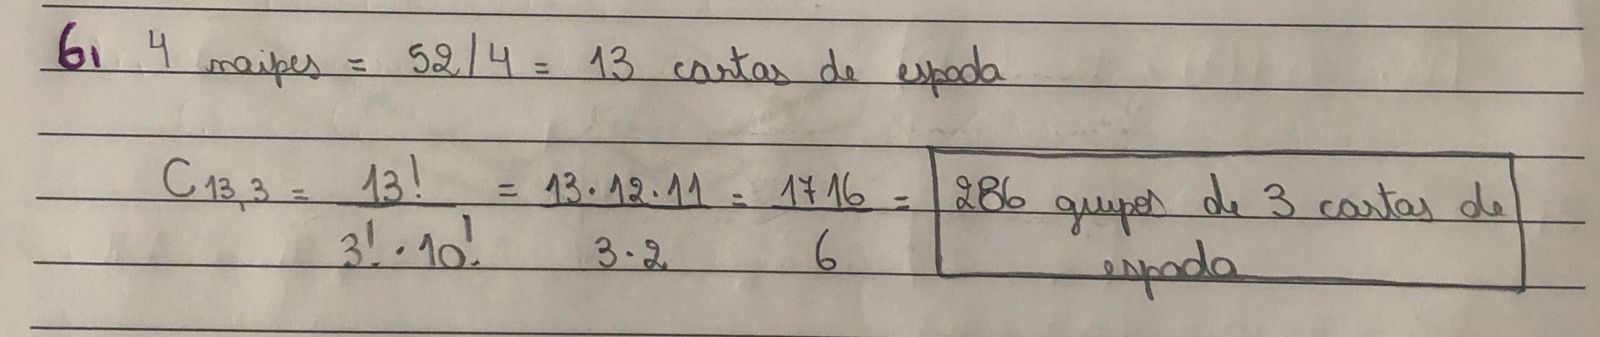 6. 4 naipes = 52/4 = 13 cartas de espada
C13,3 = 13! / 3! · 10! = 13 · 12 · 11 / 3 · 2 = 1716 / 6 = 286 grupos de 3 cartas de
espada